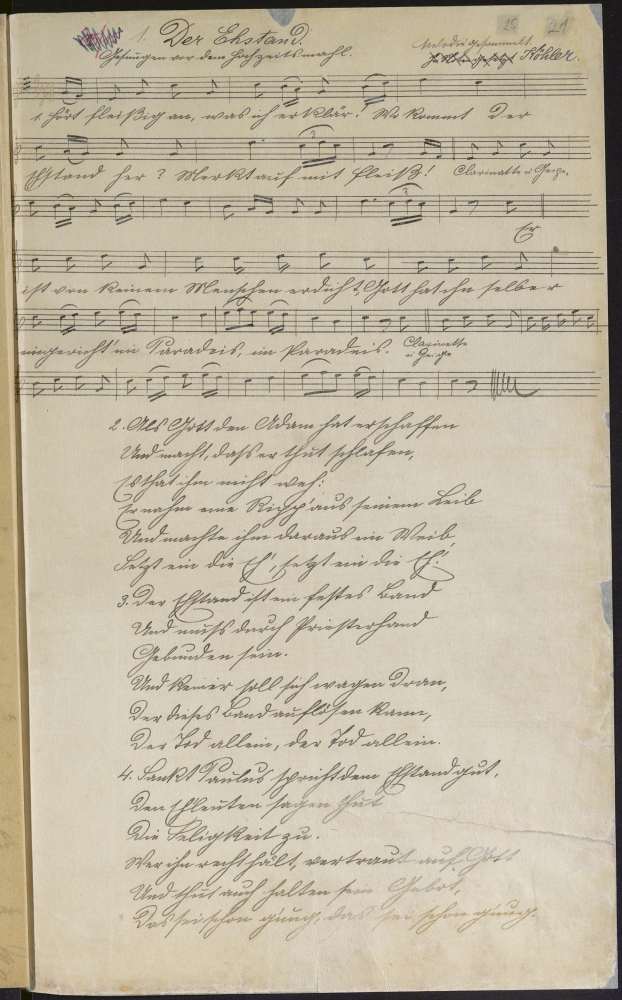 21
1. Der Ehstand.
Gesungen vor dem Hochzeitsmahl.
Melodie gesammelt
Köhler.
1. Hört fleißig an, was ich erklär'! Wo kommt Der
Ehstand her? Merkt auf mit Fleiß! Clarinette u. Geige.
Er
ist von keinem Menschen erdicht', Gott hat ihn selber
eingericht' im Paradeis, im Paradeis. Clarinette
u. Geige
2. Als Gott den Adam hat erschaffen
Und macht, daß er thut schlafen,
Es that ihm nicht weh:
Er nahm eine Ripp' aus seinem Leib
Und machte ihm daraus ein Weib,
Setzt ein die Eh', setzt ein die Eh'.
3. Der Ehstand ist ein festes Band
Und muss durch Priesterhand
Gebunden sein.
Und Keiner soll sich wagen dran,
Der dieses Band auflösen kann,
Der Tod allein, der Tod allein.
4. Sankt Paulus spricht dem Ehstand gut,
Den Ehleuten sagen thut
Die Seligkeit zu.
Wer ihn recht hält, vertraut auf Gott
Und thut auch halten sein Gebot,
Das sei schon g'nug, das sei schon g'nug.